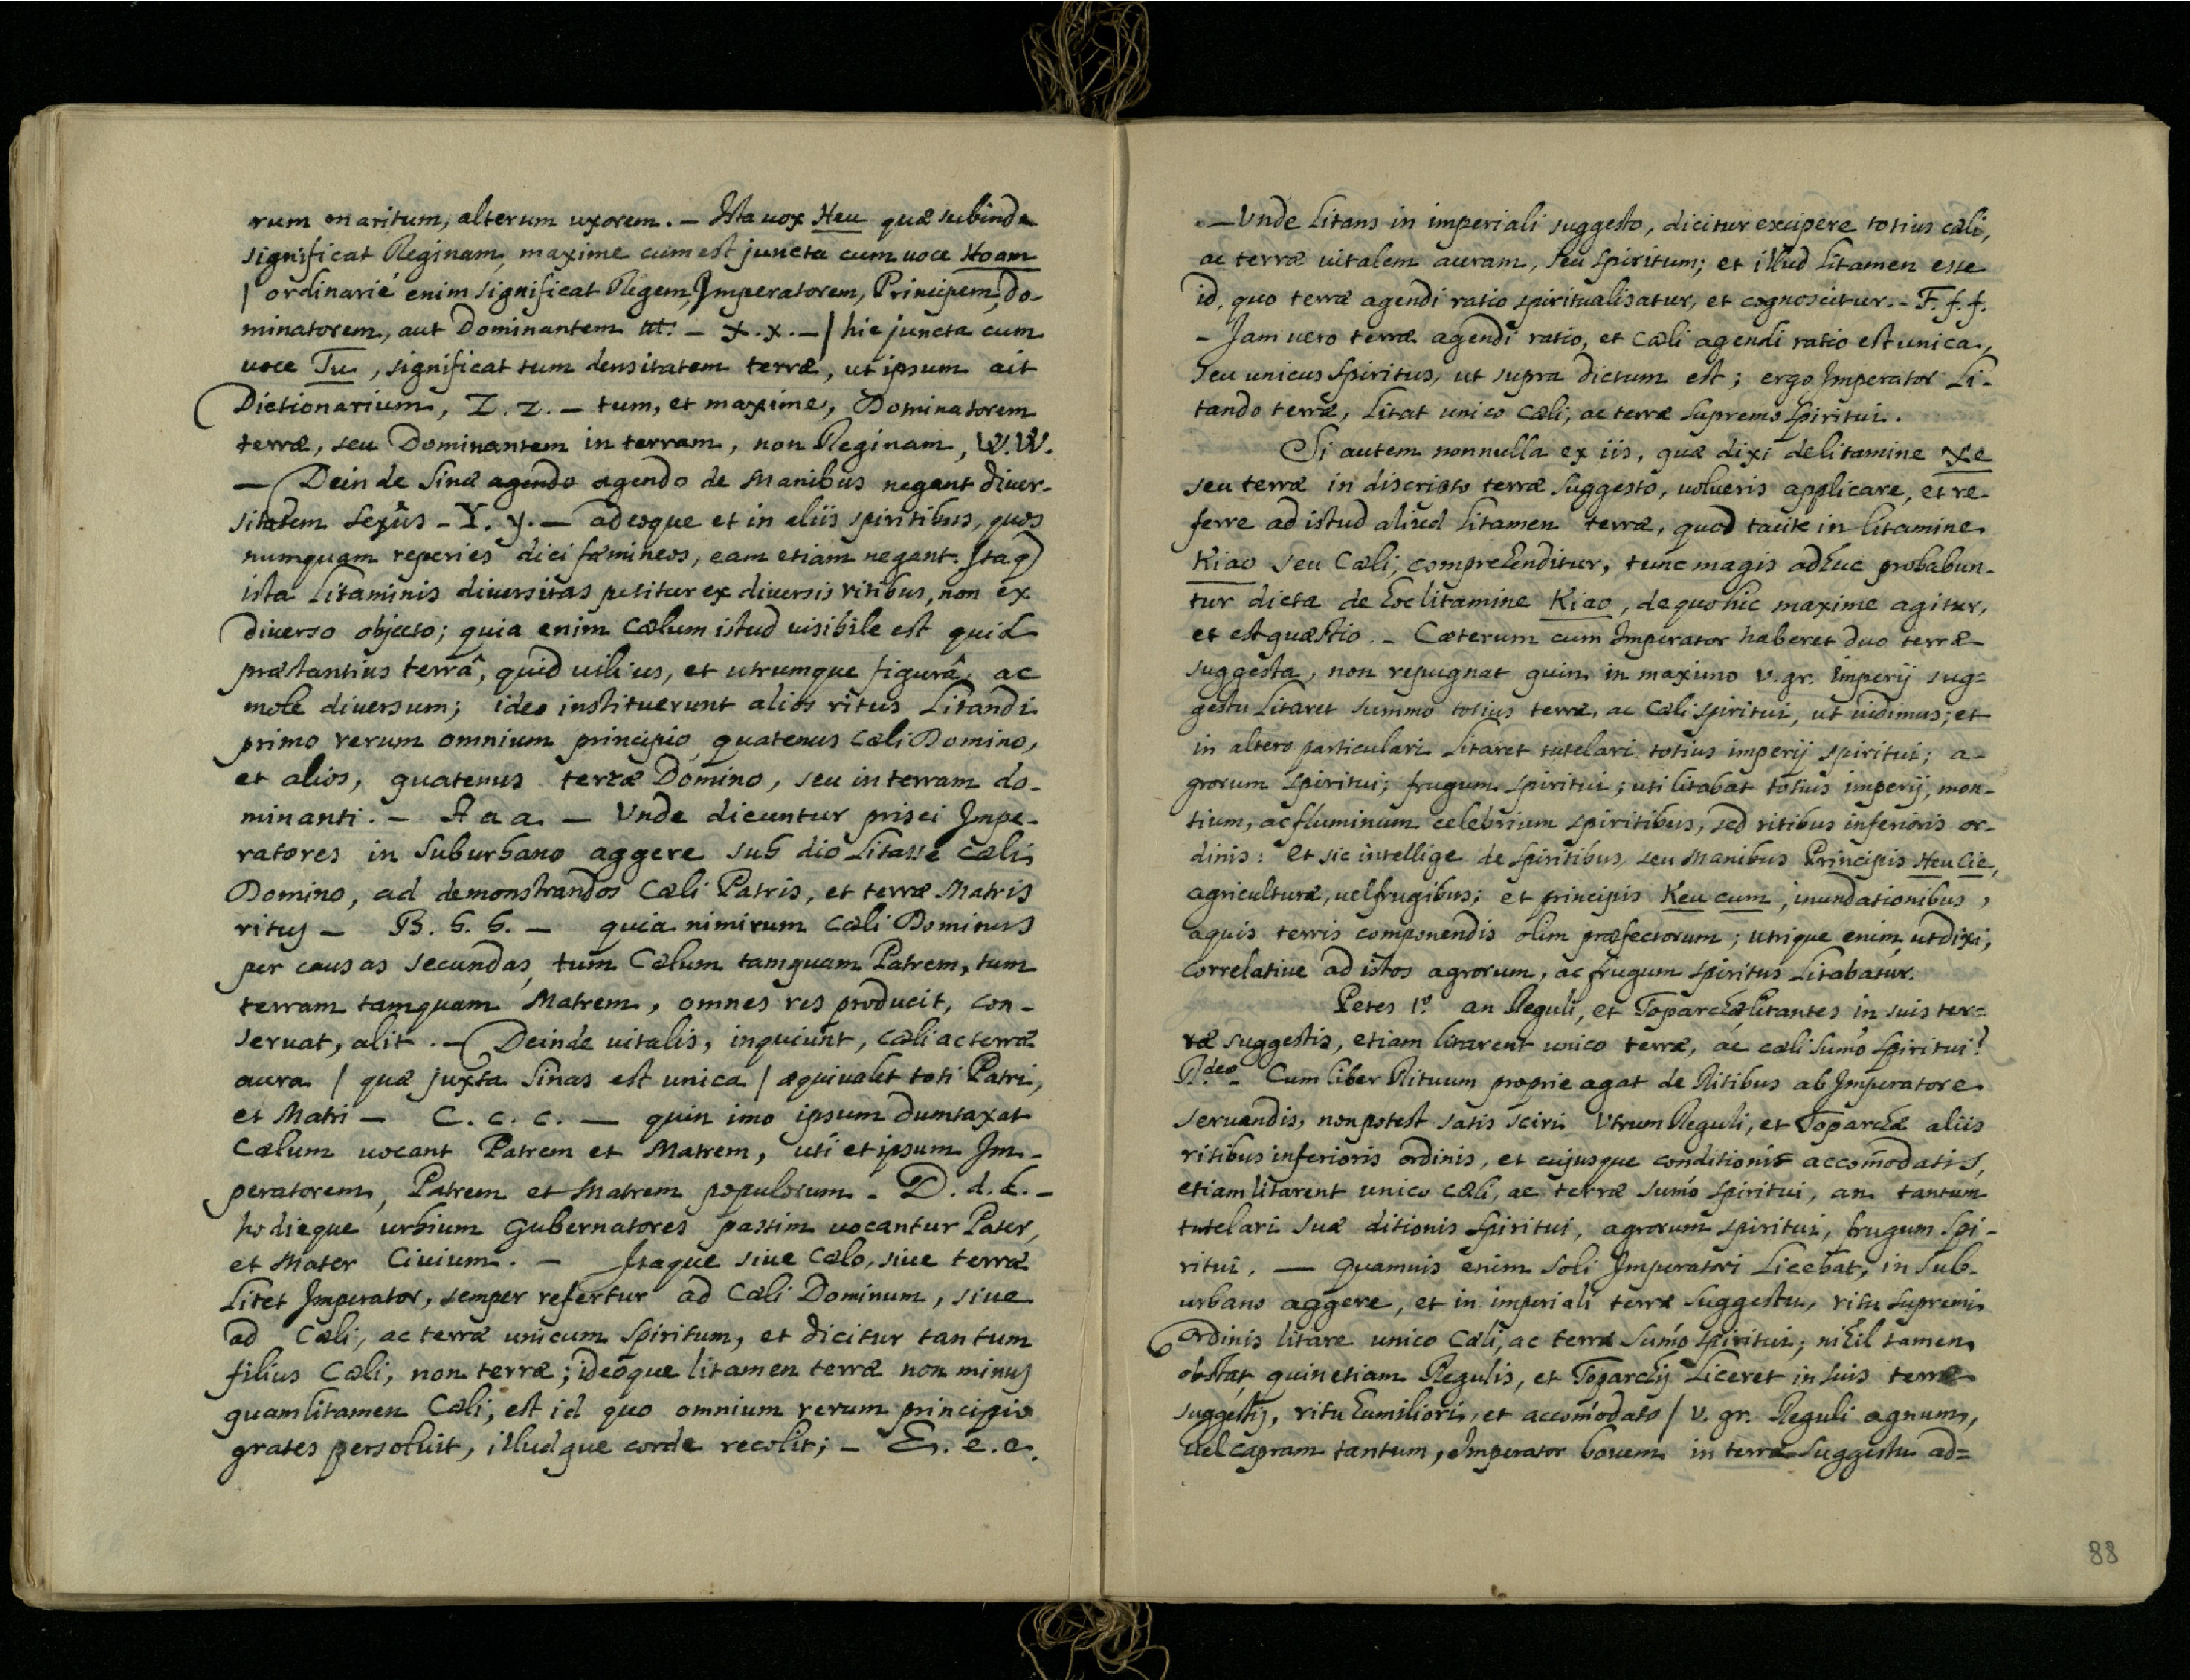 rum maritum, alterum uxorem. - Ista uox Heu quæ subinde
significat Reginam, maxime cum est juncta cum uoce Hoam
/ ordinarié enim significat Regem, Imperatorem, Principem, do-
minatorem, aut Dominantem - X. x. - / hic juncta cum
uoce Tu, significat tum densitatem terræ, ut ipsum ait
Dictionarium, Z. z. - tum, et maxime, Dominatorem
terræ, seu Dominantem in terram, non Reginam, W. W.
- Dein de Sinæ agendo agendo de Manibus negant diuer-
sitatem sexûs - Y. y. - adeoque et in aliis spiritibus, quos
numquam reperies dici fœmineos, eam etiam negant. Itaq
ista Litaminis diuersitas petitur ex diuersis ritibus, non ex
diuerso objecto; quia enim Cælum istud uisibile est quid
præstantius terrâ, quid uilius, et utrumque figurâ, ac
mole diuersum; ideo instituerunt alios ritus Litandi
primo rerum omnium principio, quatenus Cæli Domino,
et alios, quatenus terræ Domino, seu in terram do-
minanti. - A a a. - Vnde dicuntur prisci Impe-
ratores in suburbano aggere sub dio Litasse Cæli
Domino, ad demonstrandos Cæli Patris, et terræ Matris
ritus - B. b. b. - quia nimirum Cæli Dominus
per causas secundas, tum Cælum tamquam Patrem, tum
terram tamquam Matrem, omnes res producit, con-
seruat, alit. - Deinde uitalis, inquiunt, Cæli ac terræ
aura / quæ juxta Sinas est unica / æquiualet toti Patri,
et Matri - C. c. c. - quin imo ipsum dumtaxat
Cælum uocant Patrem et Matrem, uti et ipsum Im-
peratorem, Patrem et Matrem populorum - D. d. d. -
hodieque urbium Gubernatores passim uocantur Pater,
et Mater Ciuium. - Itaque siue Cælo, siue terræ
Litet Imperator, semper refertur ad Cæli Dominum, siue
ad Cæli, ac terræ unicum Spiritum, et dicitur tantum
filius Cæli, non terræ; ideoque litamen terræ non minus
quam litamen Cæli, est id quo omnium rerum principio
grates persoluit, illudque corde recolit; - E. e. e.
- Vnde Litans in imperiali suggesto, dicitur excipere totius cæli,
ac terræ uitalem auram, seu spiritum; et illud litamen esse
id, quo terræ agendi ratio spiritualisatur, et cognoscitur. - F. f. f.
- Jam uero terræ agendi ratio, et Cæli agendi ratio est unica,
seu unicus Spiritus, ut supra dictum est; ergo Imperator Li-
tando terræ, Litat unico Cæli, ac terræ supremo Spiritui.
Si autem nonnulla ex iis, quæ dixi de litamine Xe
seu terræ in discristo terræ suggesto, uolueris applicare, et re-
ferre ad istud aliud litamen terræ, quod tacite in litamine
Kiao seu Cæli, comprehenditur, tunc magis adhuc probabun-
tur dicta de hoc litamine Kiao, de quo hic maxime agitur,
et est quæstio. - Cæterum cum Imperator haberet duo terræ
suggesta, non repugnat quin in maximo v. gr. imperij sug=
gestu Litaret summo totius terræ, ac Cæli spiritui, ut uidimus; et
in altero particulari litaret tutelari totius imperij spiritui; a-
grorum spiritui; frugum spiritui; uti litabat totius imperij, mon-
tium, ac fluminum celebrium spiritibus, sed ritibus inferioris or-
dinis: Et sic intellige de Spiritibus, seu Manibus Principis Heu Cie,
agriculturæ, uel frugibus; et principis Keu cum, inundationibus,
aquis terris componendis olim præfectorum; utrique enim, ut dixi,
correlatiue ad istos agrorum, ac frugum spiritus Litabatur.
Petes 1º. an Reguli, et Toparchæ litantes in suis ter=
ræ suggestis, etiam litarent unico terræ, ac cæli sum̃o Spiritui?
R.deo Cum liber Rituum proprie agat de Ritibus ab Imperatore
seruandis, non potest satis sciri Vtrum Reguli, et Toparchæ aliis
ritibus inferioris ordinis, et cujusque conditionis accom̃odatis,
etiam litarent unico Cæli, ac terræ sum̃o Spiritui, an tantum
tutelari suæ ditionis Spiritui, agrorum spiritui, frugum spi-
ritui. - Quamuis enim soli Imperatori Licebat, in sub-
urbano aggere, et in imperiali terræ suggestu, ritu supremi
Ordinis litare unico Cæli, ac terræ sum̃o spiritui; nihil tamen
obstat, quin etiam Regulis, et Toparchij Liceret in suis terræ
suggestis, ritu humiliori, et accom̃odato / v. gr. Reguli agnum,
uel capram tantum, Imperator bouem in terræ suggestu ad=
88